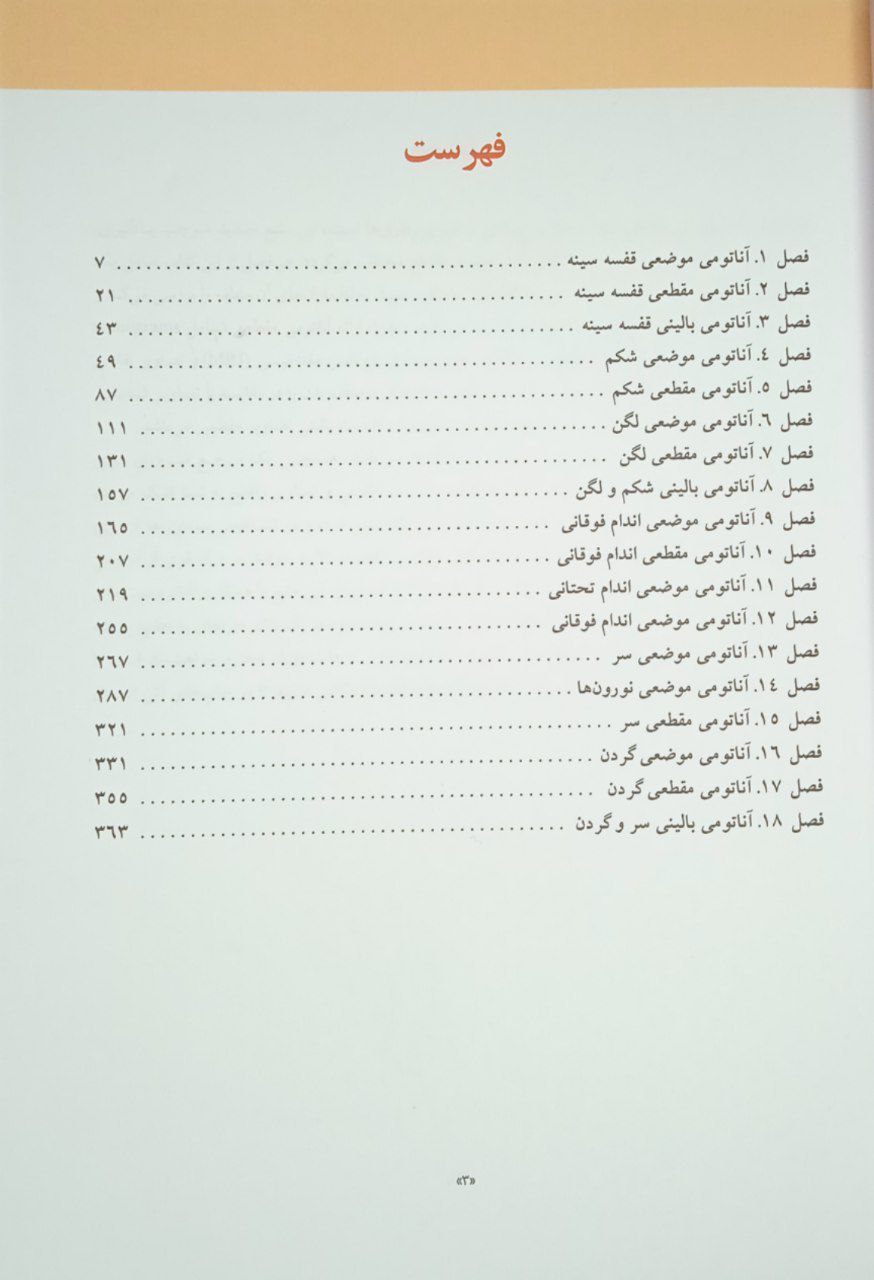 فهرست
فصل ۱. آناتومی موضعی قفسه سینه ........................................ ۷
فصل ۲. آناتومی مقطعی قفسه سینه ........................................ ۲۱
فصل ۳. آناتومی بالینی قفسه سینه ........................................ ٤۳
فصل ٤. آناتومی موضعی شکم ........................................ ٤۹
فصل ۵. آناتومی مقطعی شکم ........................................ ۸۷
فصل ٦. آناتومی موضعی لگن ........................................ ۱۱۱
فصل ۷. آناتومی مقطعی لگن ........................................ ۱۳۱
فصل ۸. آناتومی بالینی شکم و لگن ........................................ ۱۵۷
فصل ۹. آناتومی موضعی اندام فوقانی ........................................ ۱٦۵
فصل ۱۰. آناتومی مقطعی اندام فوقانی ........................................ ۲۰۷
فصل ۱۱. آناتومی موضعی اندام تحتانی ........................................ ۲۱۹
فصل ۱۲. آناتومی موضعی اندام فوقانی ........................................ ۲۵۵
فصل ۱۳. آناتومی موضعی سر ........................................ ۲٦۷
فصل ۱٤. آناتومی موضعی نورون‌ها ........................................ ۲۸۷
فصل ۱۵. آناتومی مقطعی سر ........................................ ۳۲۱
فصل ۱٦. آناتومی موضعی گردن ........................................ ۳۳۱
فصل ۱۷. آناتومی مقطعی گردن ........................................ ۳۵۵
فصل ۱۸. آناتومی بالینی سر و گردن ........................................ ۳٦۳
«۳»